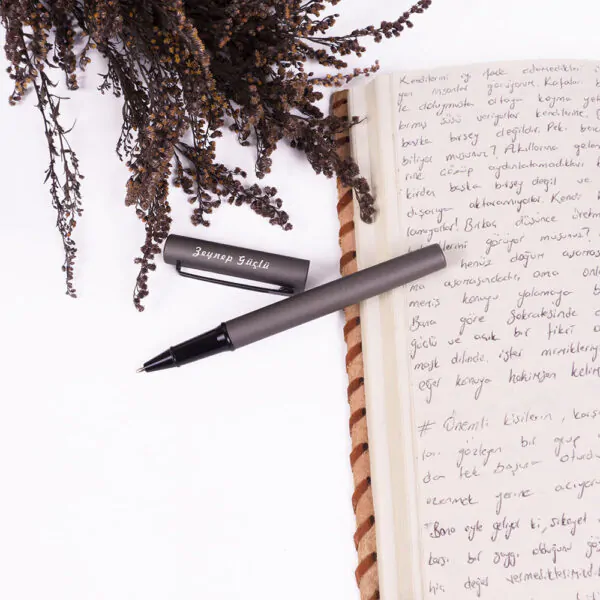 Zeynep Güçlü
Kendilerini iyi ifade edemedikleri i
yan insanlar görüyorum. Kafaları b
le dolaymışta ortaya koyma ye
birmiş süsü veriyorlar kendilerine. B
başka birşey değildir. Pek, bence
biliyor musunuz? Akıllarına gelen
rine çözüp aydınlatamadıkları b
kirden başka birşey değil ve
dışarıya aktaramıyorlar. Kendi k
lamıyorlar! Birkaç düşünce üretm
görüyor musunuz?
henüz doğum aşaması
ma aşamasındadır, ama onla
memiş konuyu yalamaya b
Bana göre Sokrates'inde d
güçlü ve açık bir fikri a
mask dilinde, ister mimikleriy
eğer konuya hakimsen kelim
# Önemli kişilerin, karş
gözleyen bir grup
da tek başına oturdu
ezermek yerine acıyor
"Bana öyle geliyor ki, şikayet
karşı bir saygı olduğunu gö
hiç değer vermediklerimizd